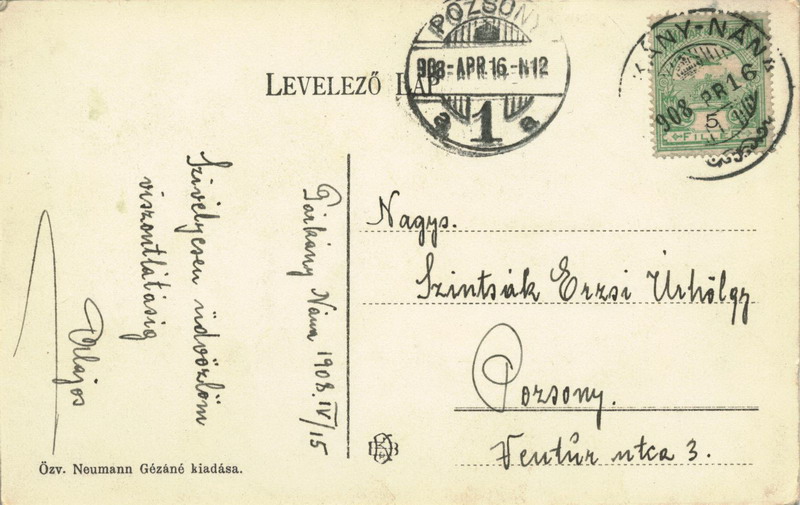 LEVELEZŐ LAP
POZSONY
908-APR.16.-N12
a 1 a
KÁNY-NÁNA
908 APR 16
5
FILLÉR
Szívélyesen üdvözlöm
viszontlátásig
Alajos
Párkány Nána 1908. IV/15
Nagys.
Szintsák Erzsi Úrhölgy
Pozsony.
Ventúr utca 3.
Özv. Neumann Gézáné kiadása.